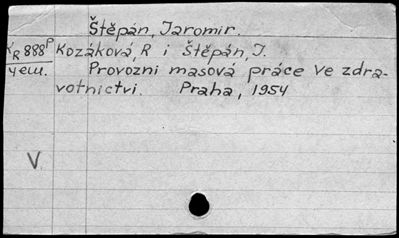 Štěpán, Jaromir.
KR 888P Kozáková, R i Štěpán, J.
чеш. Provozni masová práce ve zdra-
votnictvi. Praha, 1954
V